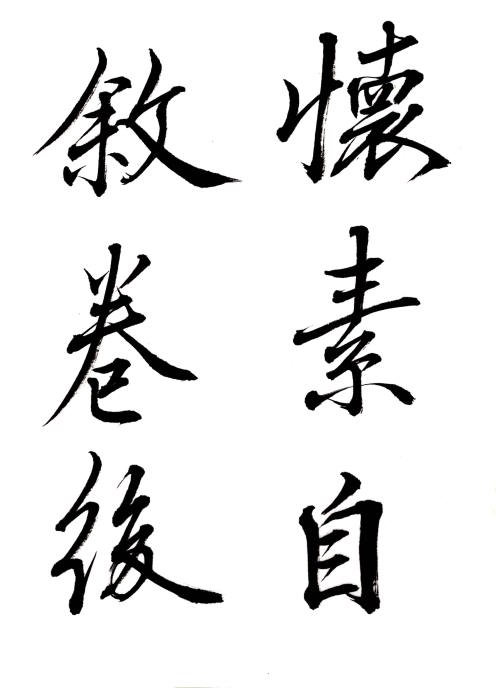 懷素自
敘卷後